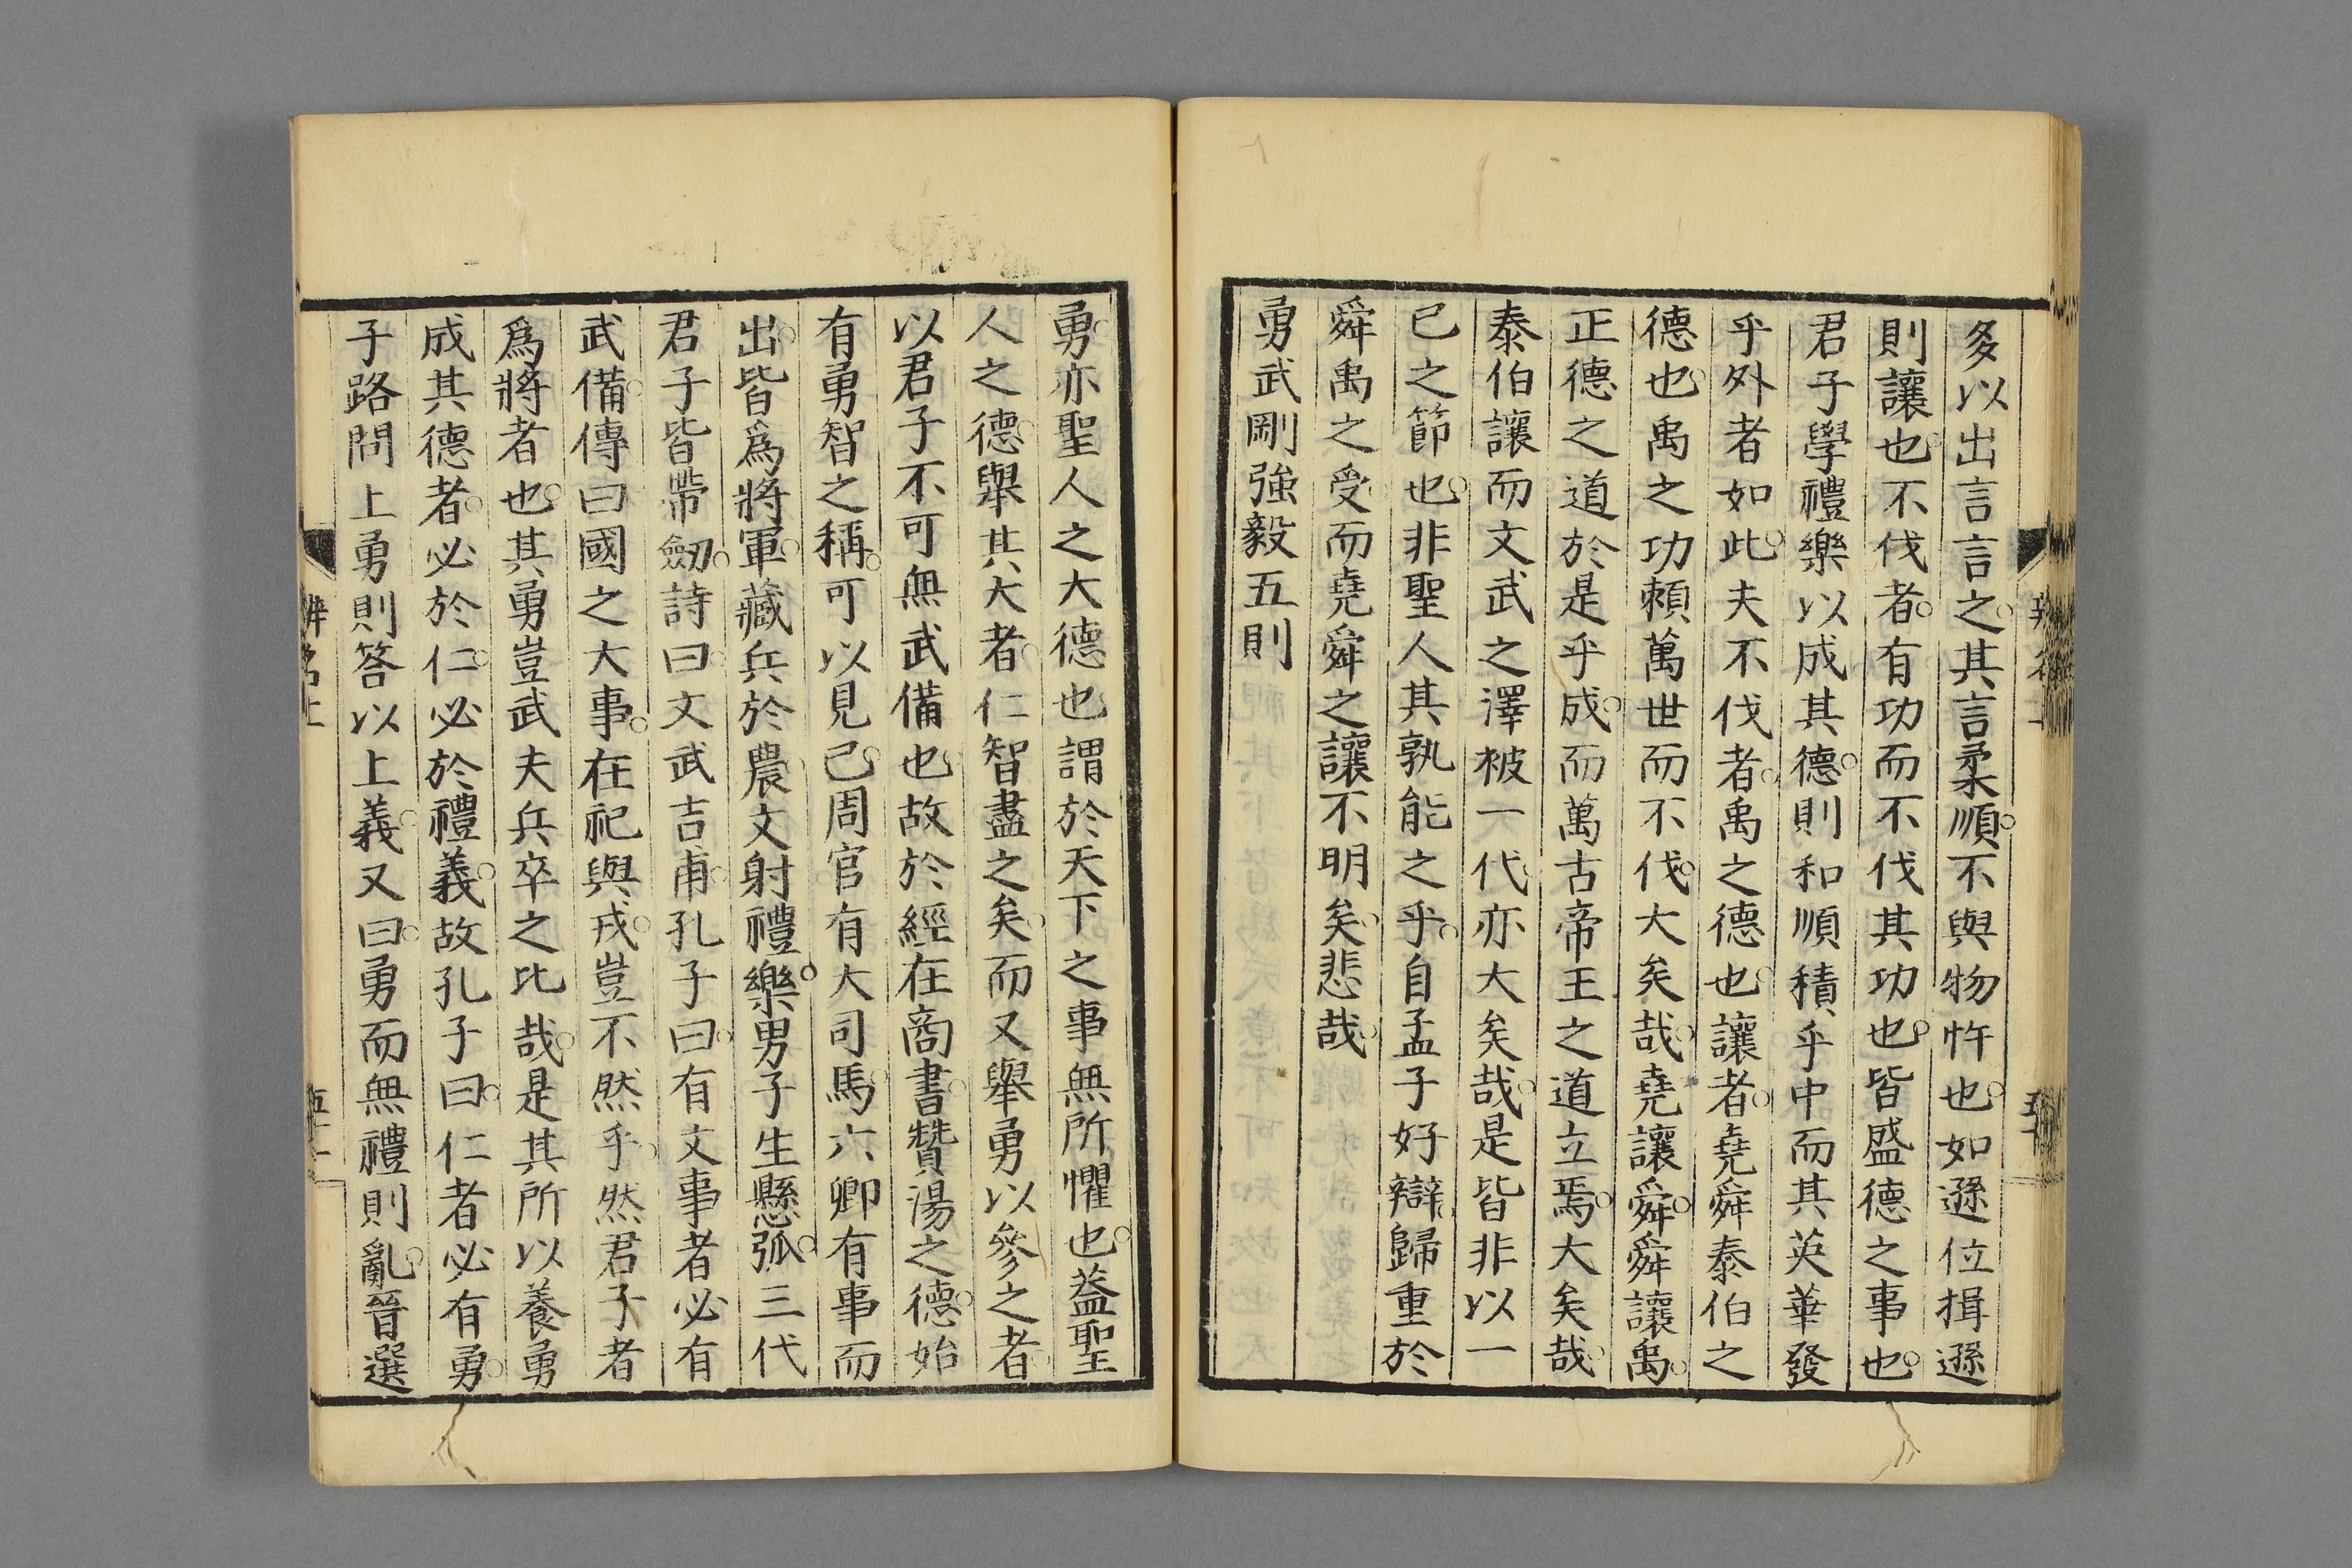 多以出言言之其言柔順不與物忤也如遜位揖遜
則讓也不伐者有功而不伐其功也皆盛德之事也
君子學禮樂以成其德則和順積乎中而其英華發
乎外者如此夫不伐者禹之德也讓者堯舜泰伯之
德也禹之功賴萬世而不伐大矣哉堯讓舜舜讓禹
正德之道於是乎成而萬古帝王之道立焉大矣哉
泰伯讓而文武之澤被一代亦大矣哉是皆非以一
已之節也非聖人其孰能之乎自孟子好辯歸重於
舜禹之受而堯舜之讓不明矣悲哉
勇武剛強毅五則
勇亦聖人之大德也謂於天下之事無所懼也葢聖
人之德舉其大者仁智盡之矣而又舉勇以參之者
以君子不可無武備也故於經在商書贊湯之德始
有勇智之稱可以見已周官有大司馬六卿有事而
出皆爲將軍藏兵於農文射禮樂男子生懸弧三代
君子皆帶劒詩曰文武吉甫孔子曰有文事者必有
武備傳曰國之大事在祀與戎豈不然乎然君子者
爲將者也其勇豈武夫兵卒之比哉是其所以養勇
成其德者必於仁必於禮義故孔子曰仁者必有勇
子路問上勇則答以上義又曰勇而無禮則亂晉選
辨名上